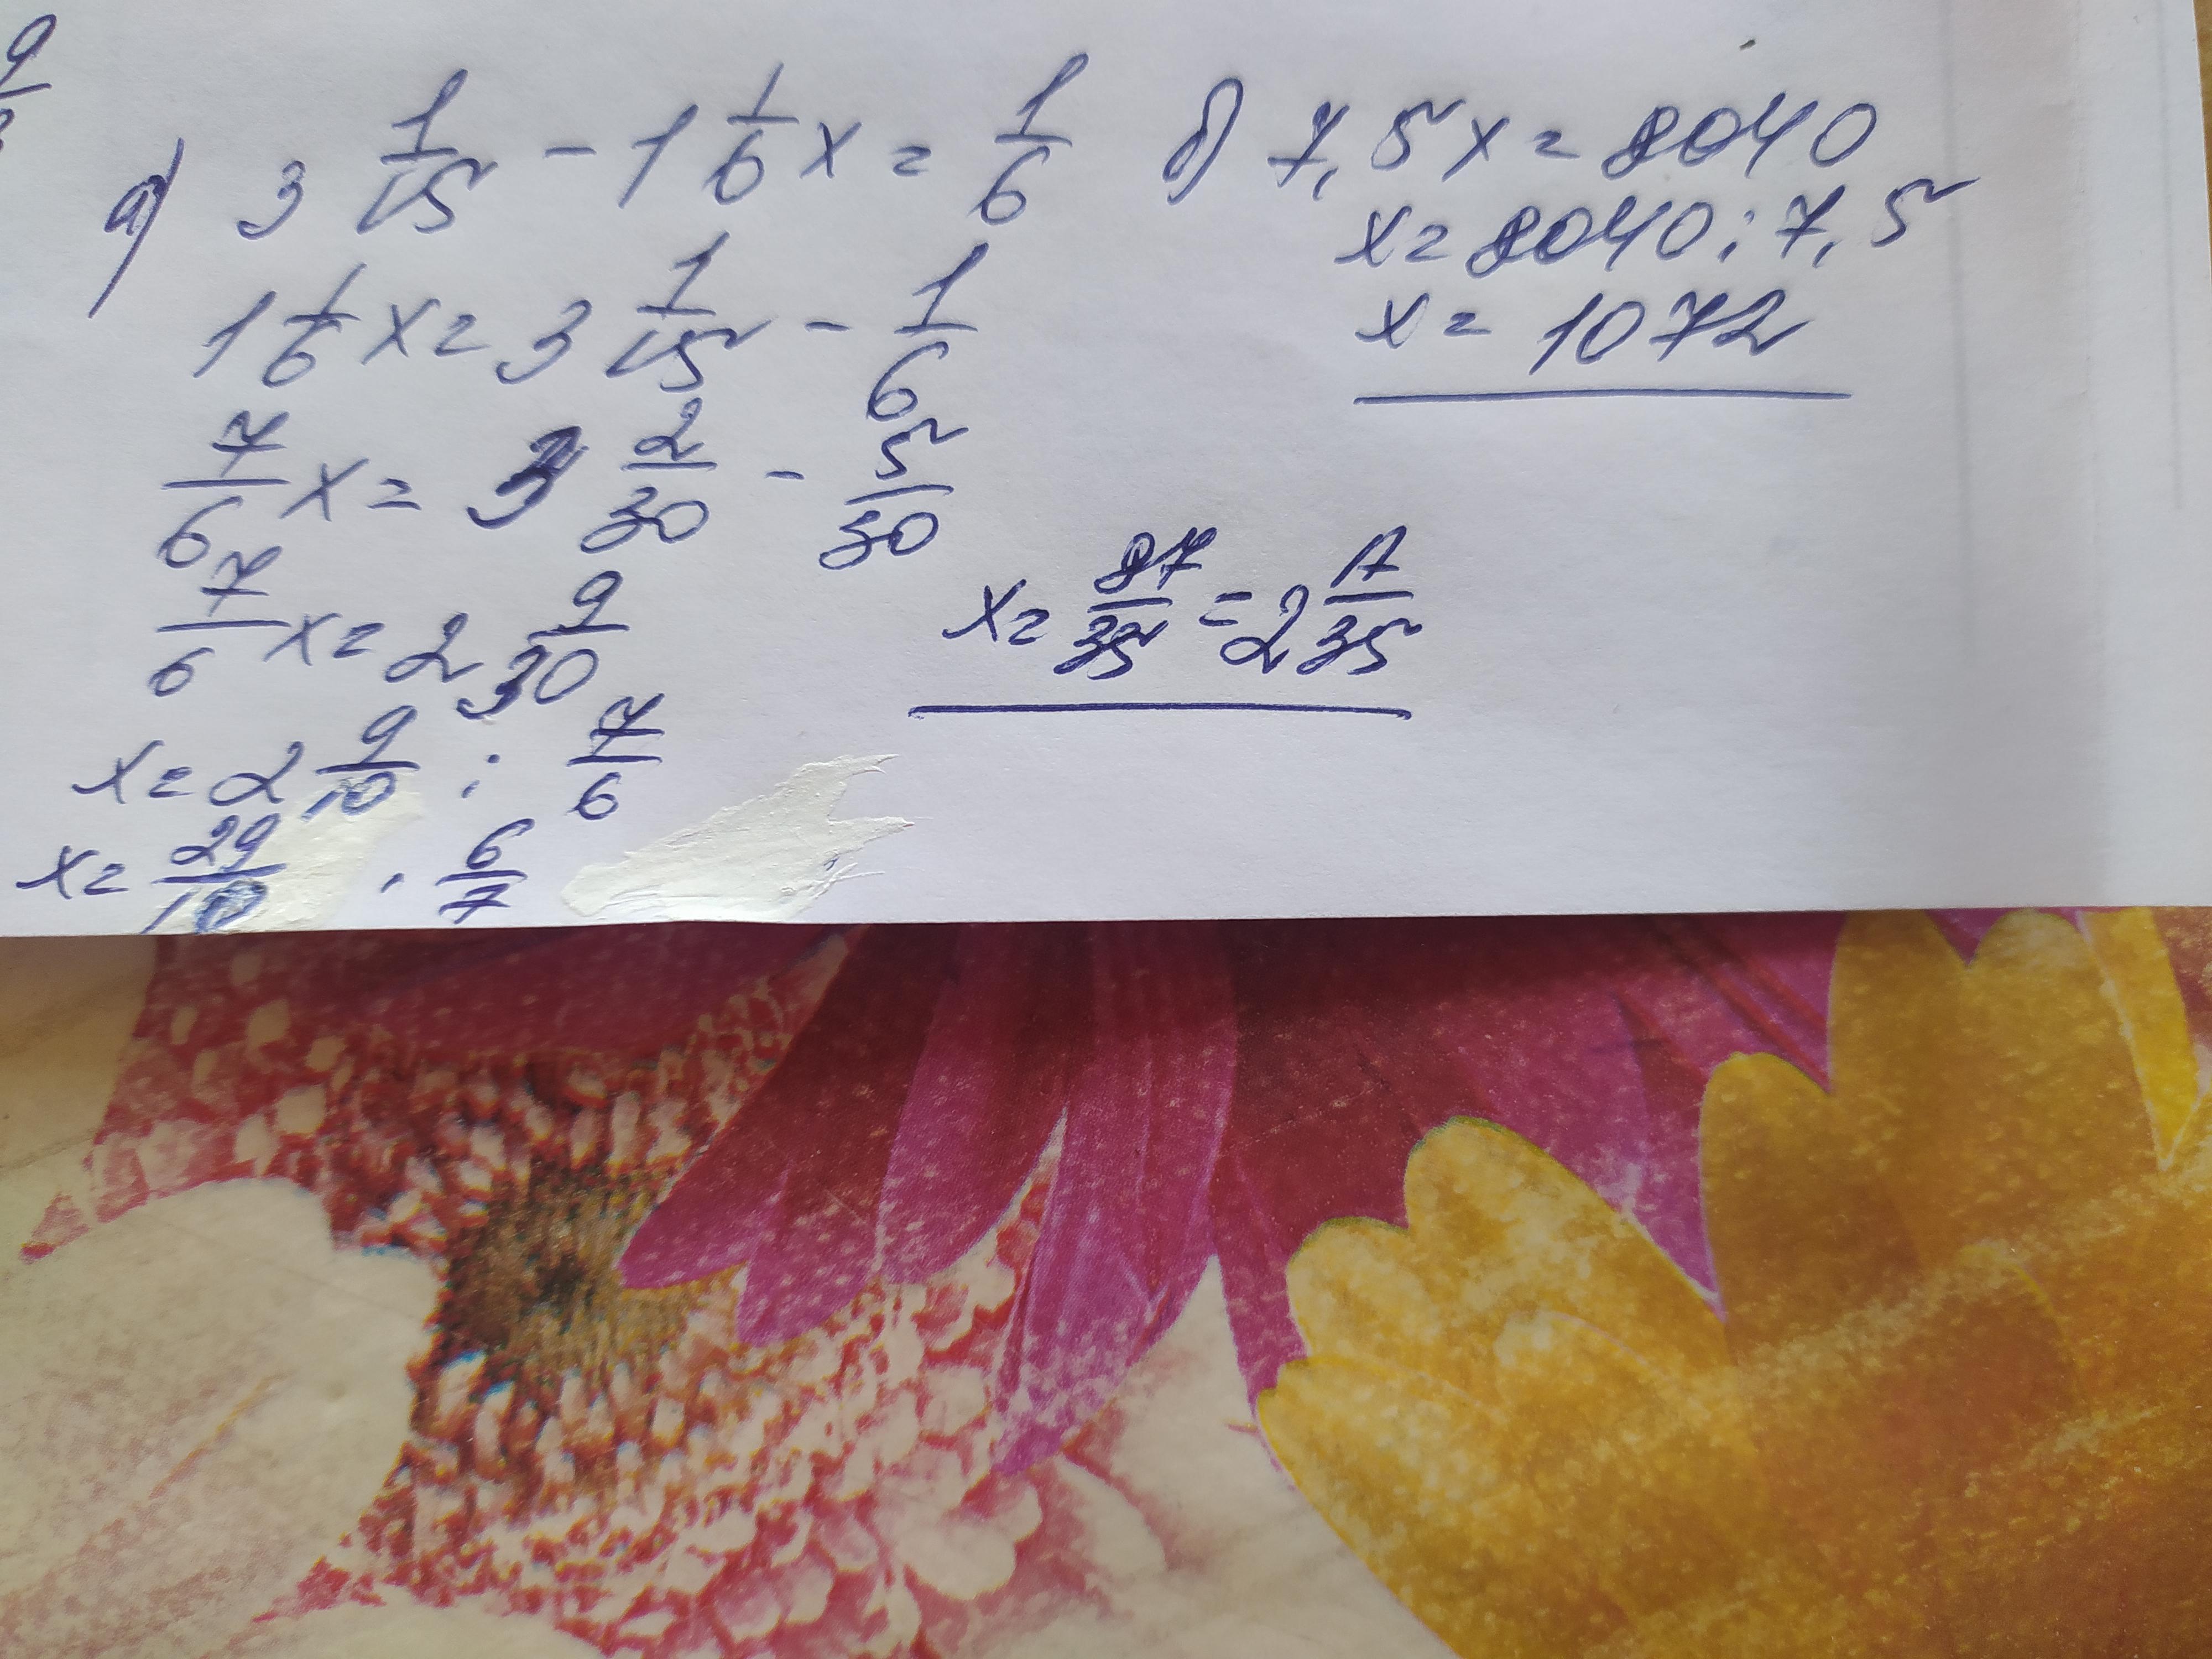 а) 3 1/15 - 1 1/6 x = 1/6
1 1/6 x = 3 1/15 - 1/6
7/6 x = 3 2/30 - 5/30
7/6 x = 2 9/30
x = 2 9/10 : 7/6
x = 29/10 · 6/7
x = 87/35 = 2 17/35
б) 7,5x = 8040
x = 8040 : 7,5
x = 1072